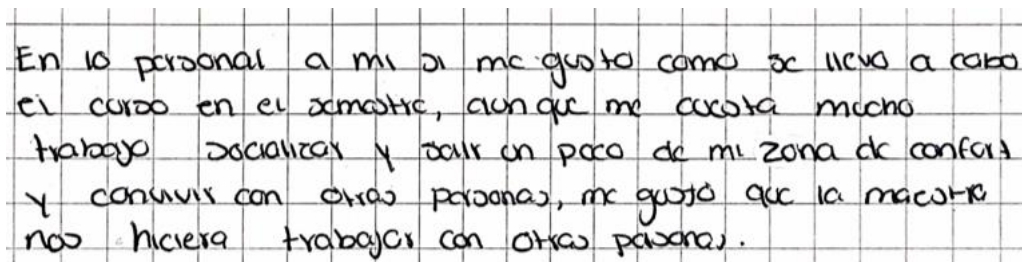 En lo personal a mi si me gusto como se llevo a cabo
el curso en el semestre, aun que me cuesta mucho
trabajo socializar y salir un poco de mi zona de confort
y convivir con otras personas, me gustó que la maestra
nos hiciera trabajar con otras personas.